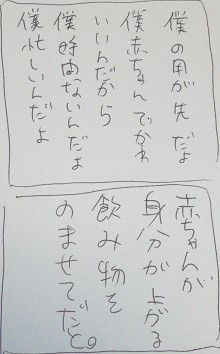 僕の用が先だよ
僕赤ちゃんでかわ
いいんだから
僕時間ないんだよ
僕忙しいんだよ
赤ちゃんが
身分が上がる
飲み物を
のませてだと。